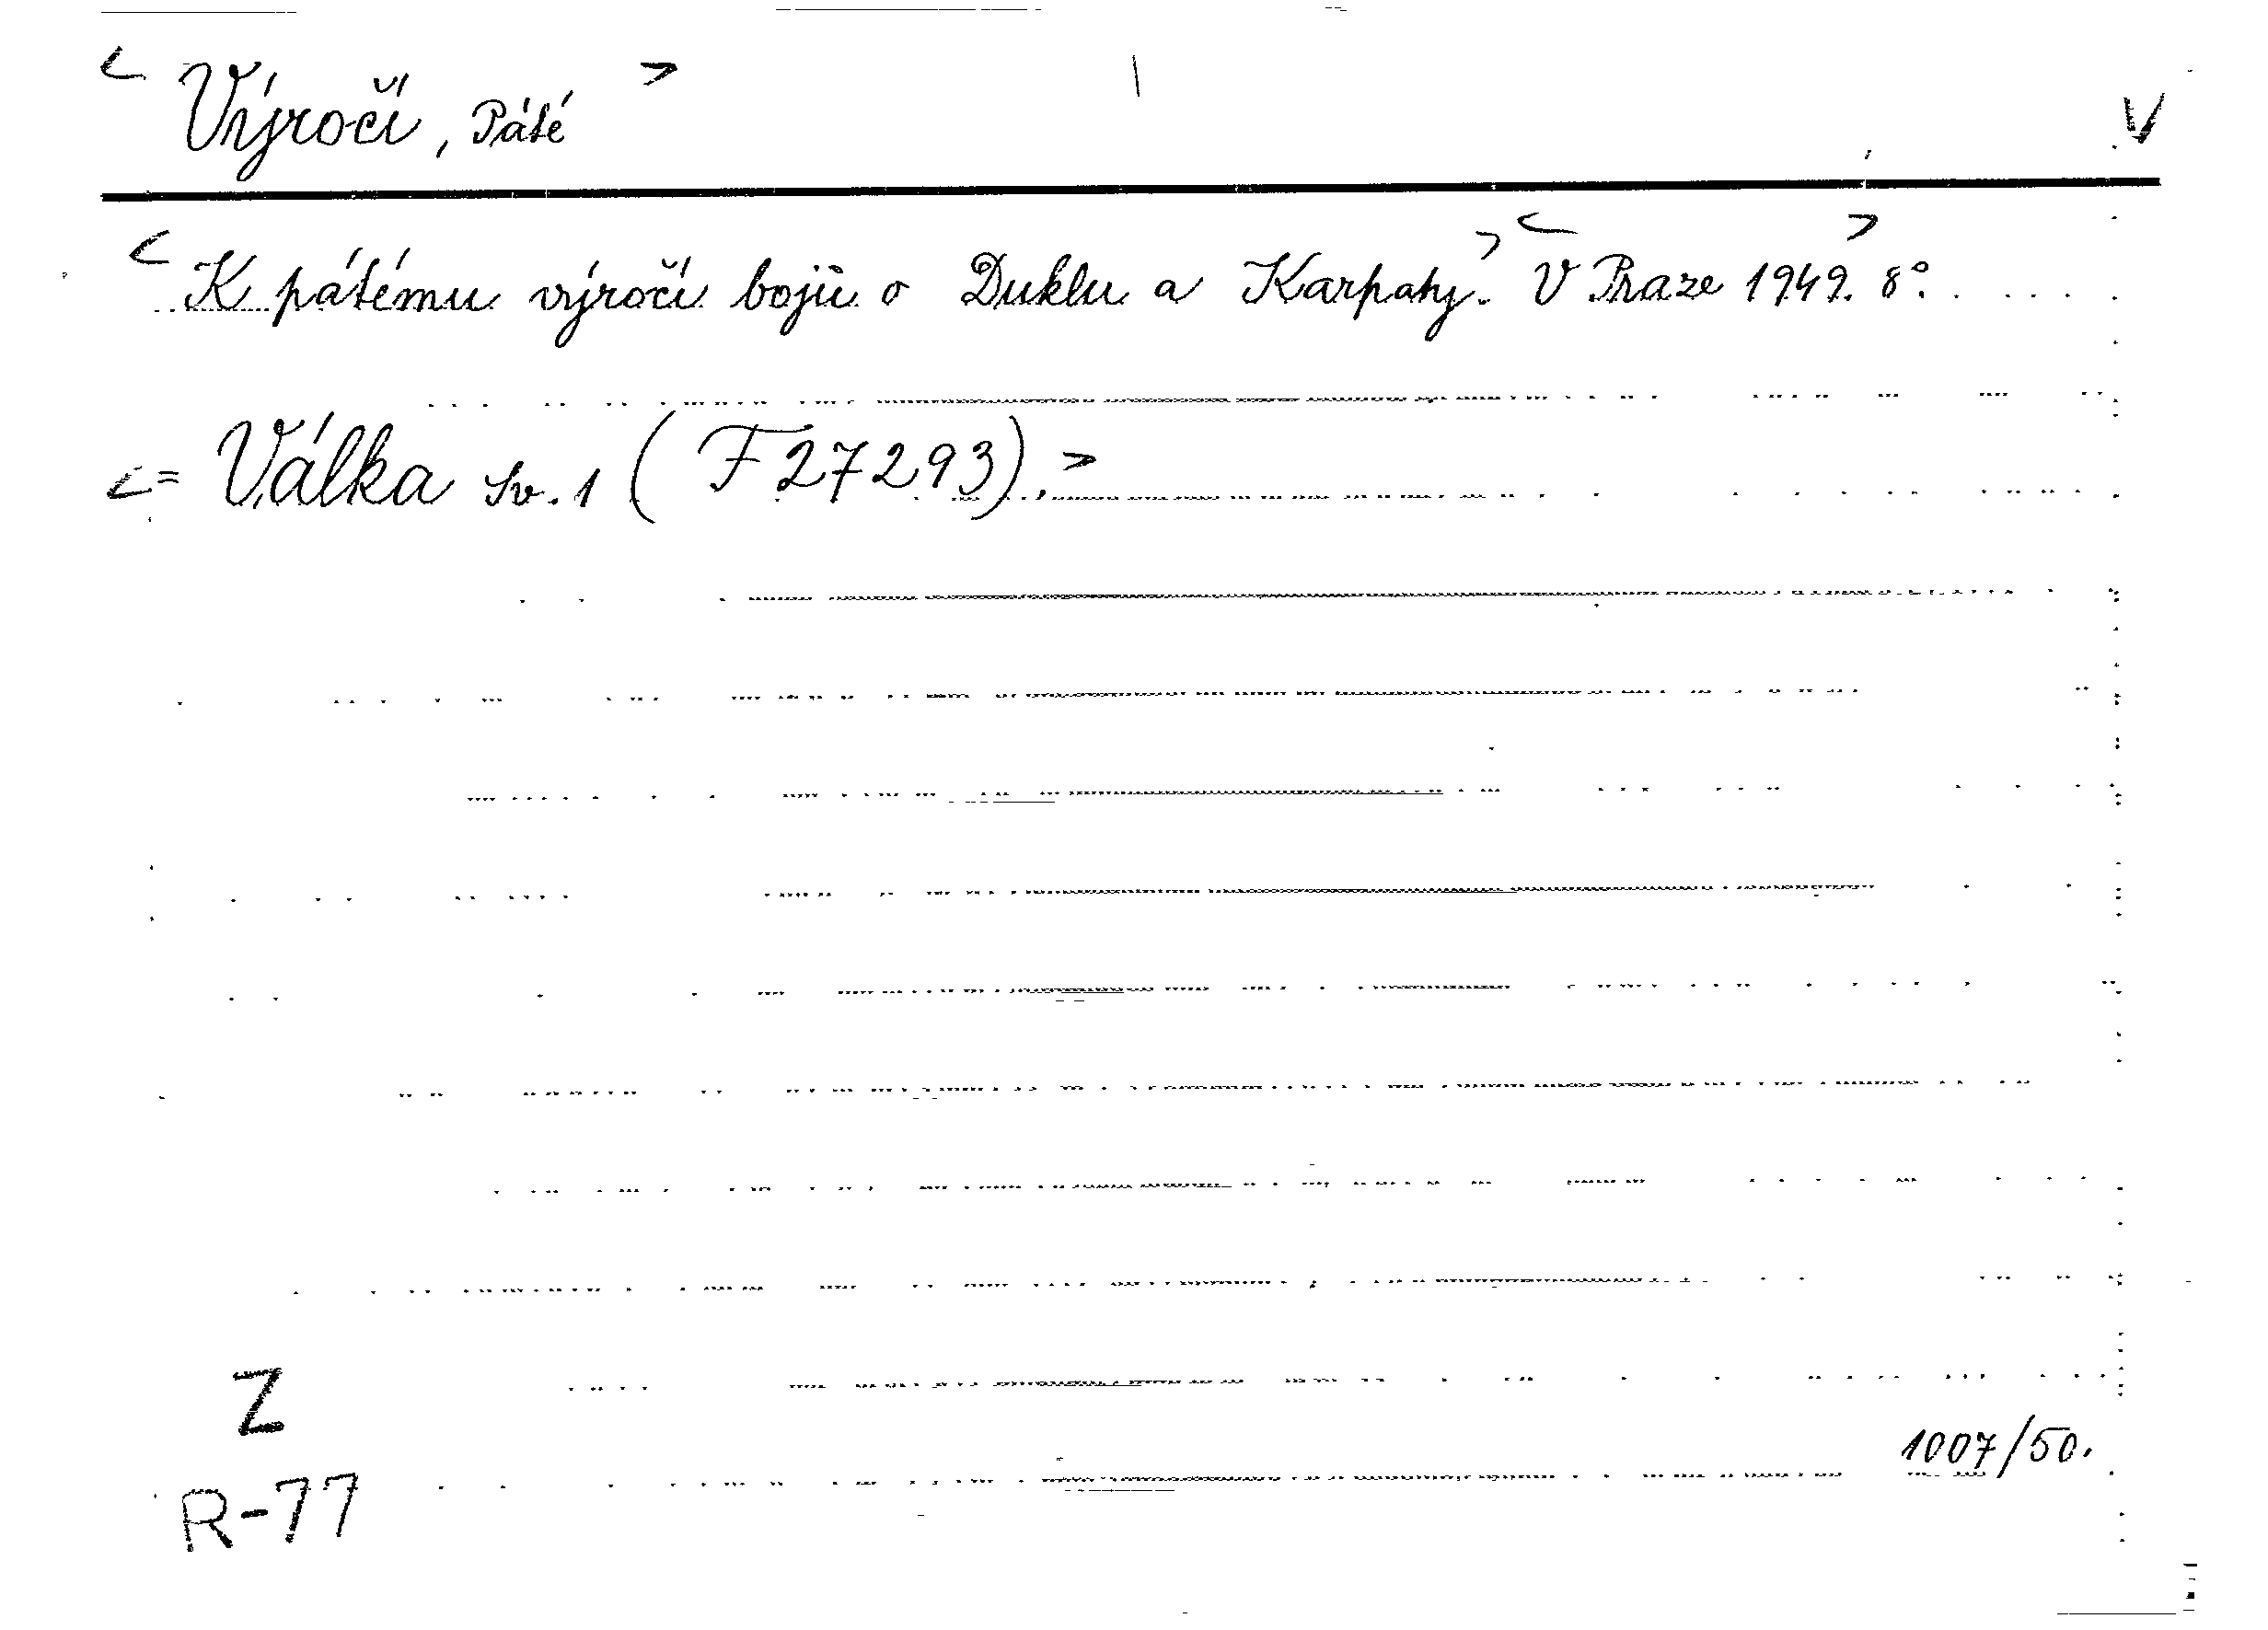 < Výročí, Páté > V
< K pátému výročí bojů o Duklu a Karpaty. > < V Praze 1949. > 8°.
<= Válka sv. 1 (F 27293). >
Z
1007/50.
R-77